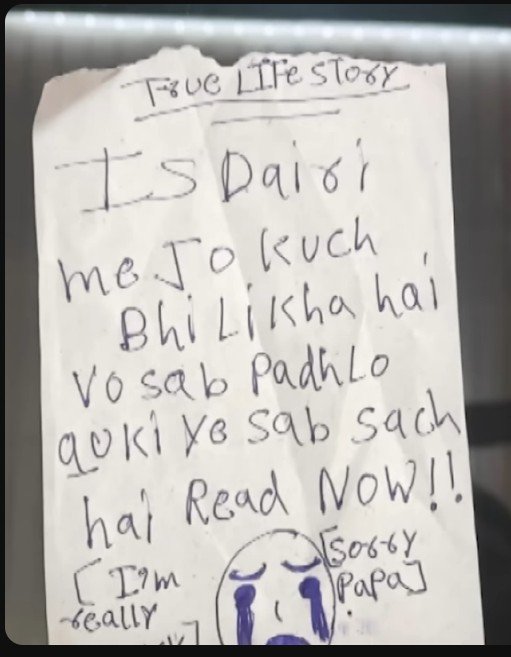 True Life Story
Is Dairi
me Jo kuch
Bhi Likha hai
Vo sab Padh Lo
quki ye sab sach
hai Read NOW!!
[Sorry
Papa]
[I'm
really